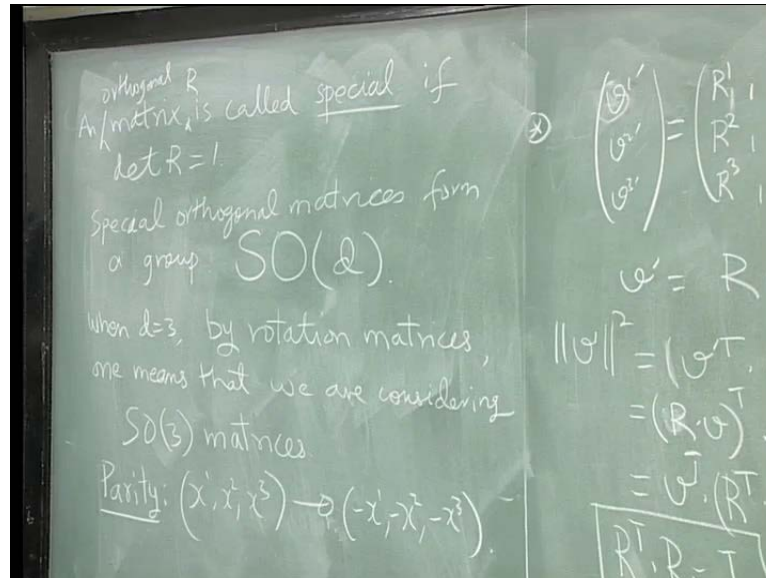 An orthogonal matrix R is called special if
det R = 1.
Special orthogonal matrices form
a group SO(d).
when d=3, by rotation matrices,
one means that we are considering
SO(3) matrices
Parity: (x¹, x², x³) → (-x¹, -x², -x³).
(v¹' v²' v²') = (R¹₁, R²₁ R³₁
v' = R
||v||² = (v'ᵀ.
= (R·v)ᵀ
= vᵀ·(Rᵀ
Rᵀ·R = I